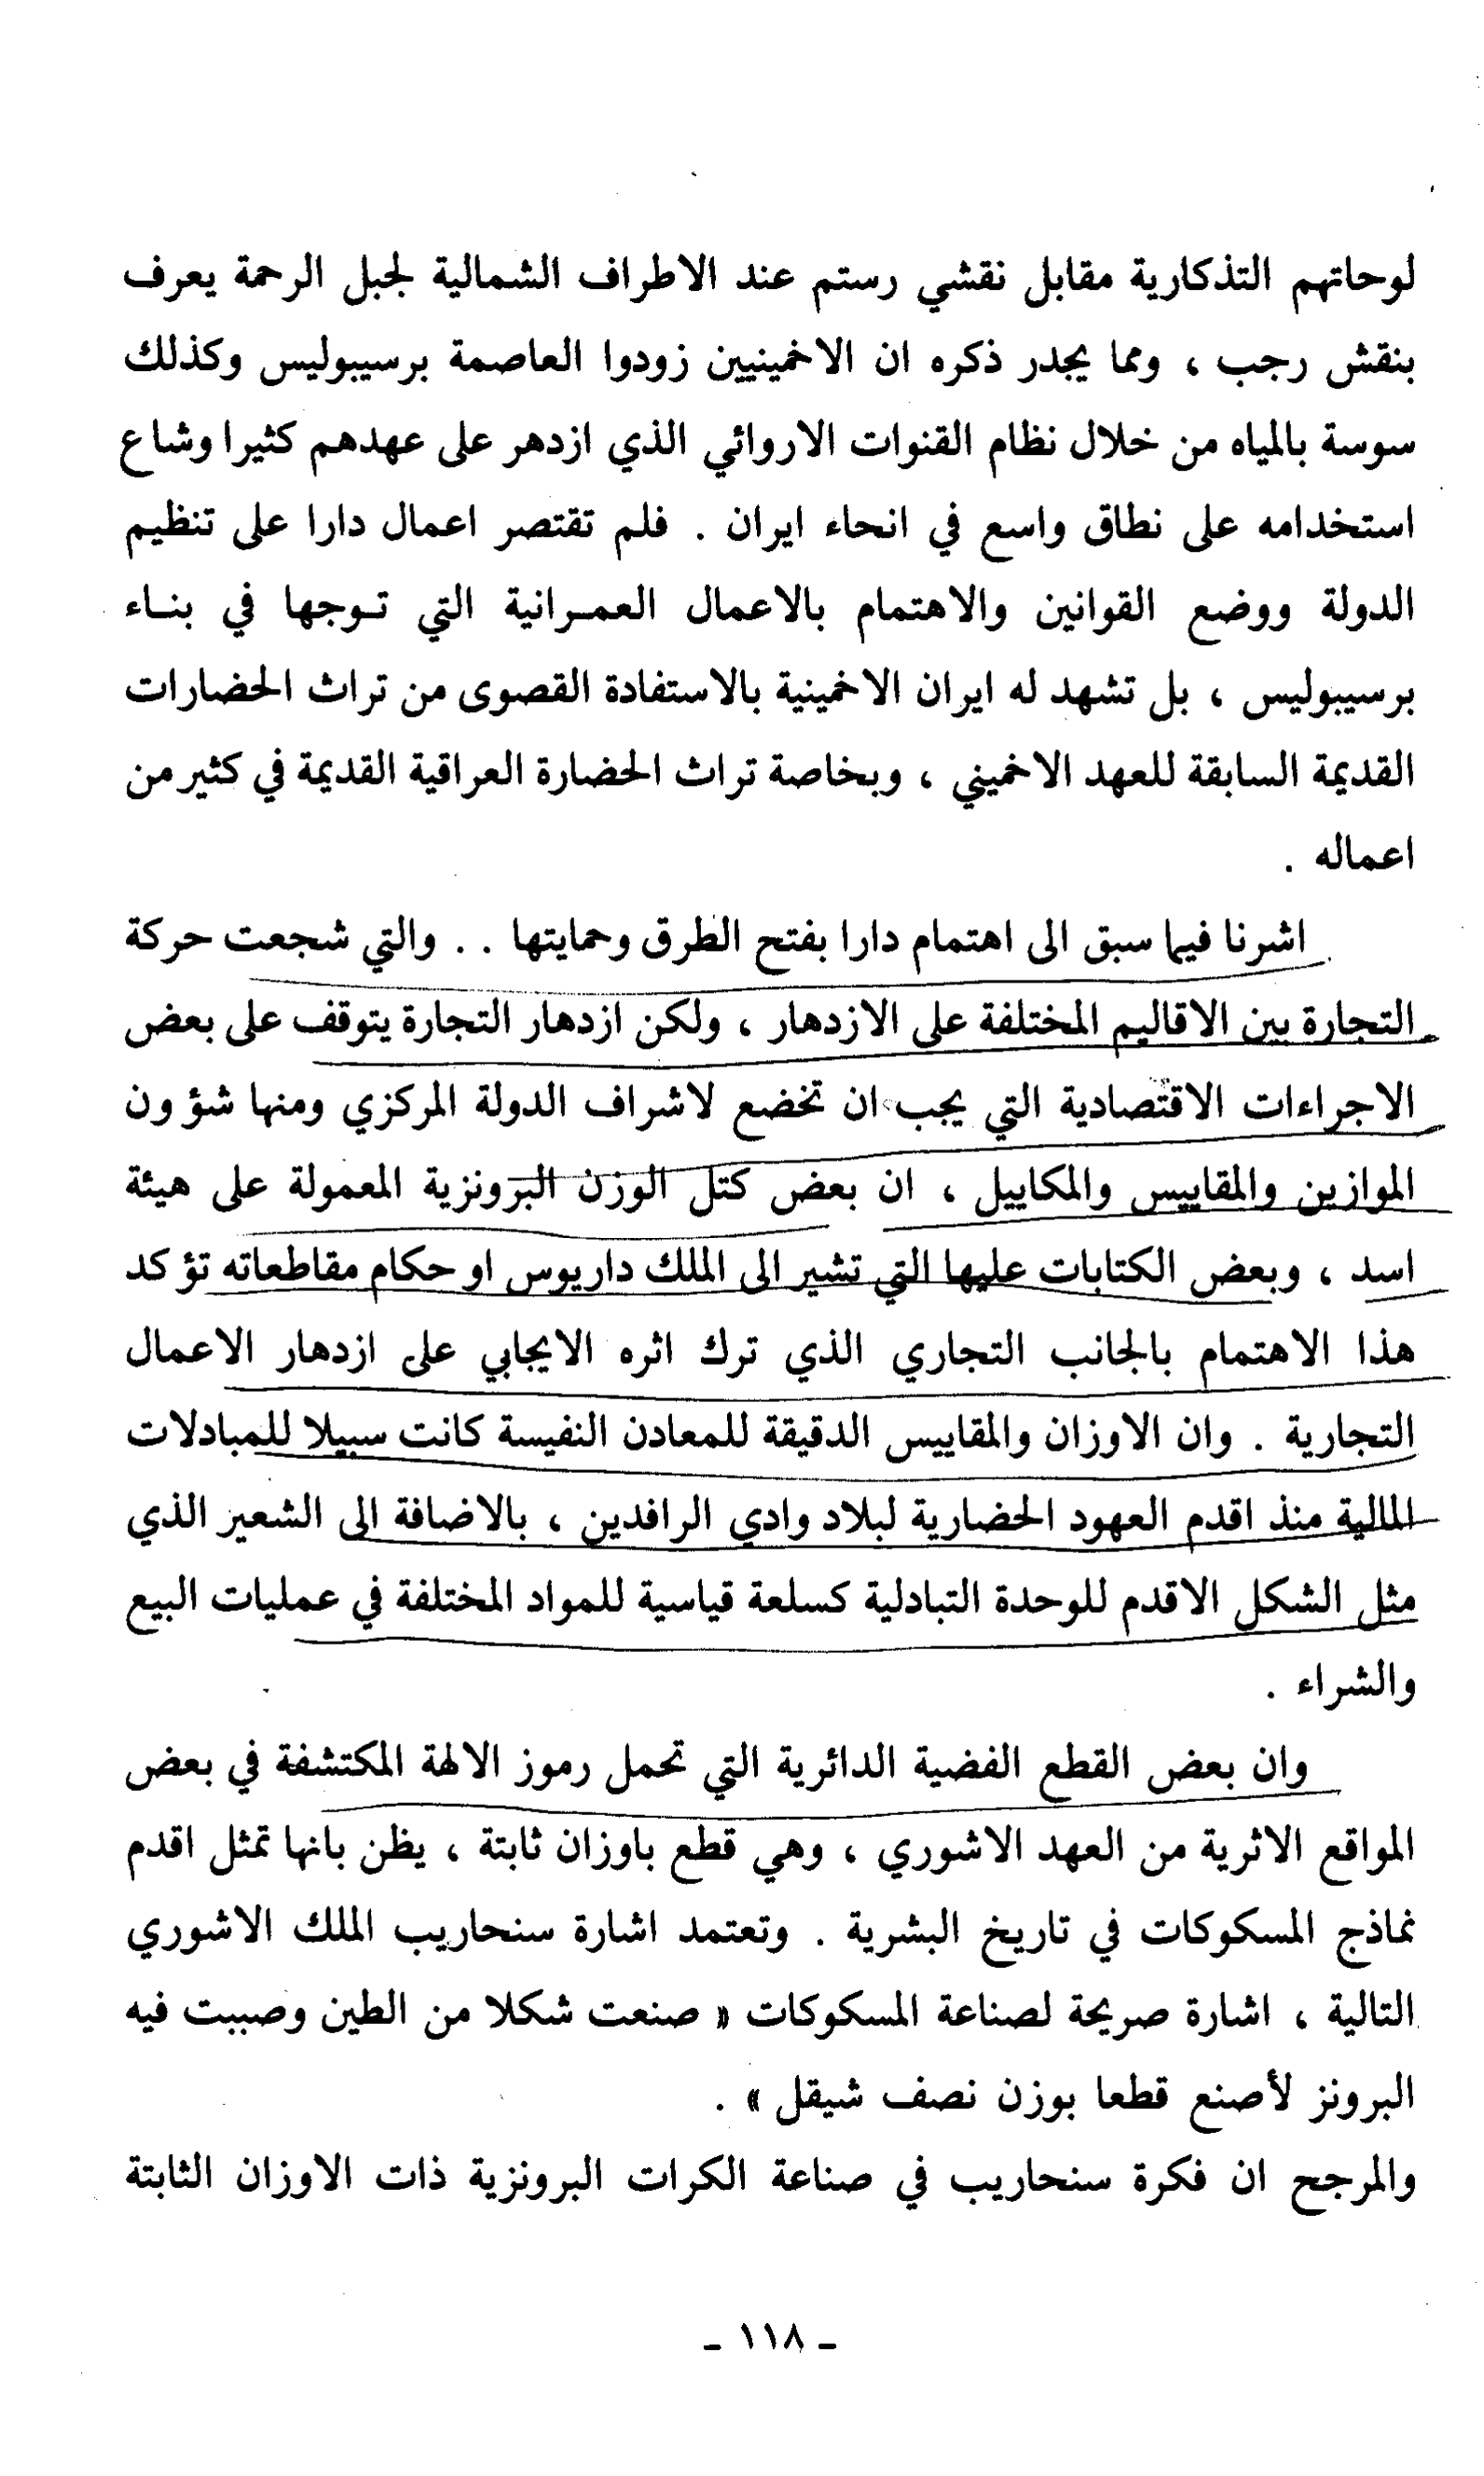 لوحاتهم التذكارية مقابل نقشي رستم عند الاطراف الشمالية لجبل الرحمة يعرف
بنقش رجب ، ومما يجدر ذكره ان الاخمينيين زودوا العاصمة برسيبوليس وكذلك
سوسة بالمياه من خلال نظام القنوات الاروائي الذي ازدهر على عهدهم كثيرا وشاع
استخدامه على نطاق واسع في انحاء ايران . فلم تقتصر اعمال دارا على تنظيم
الدولة ووضع القوانين والاهتمام بالاعمال العمـرانية التي تـوجها في بنـاء
برسيبوليس ، بل تشهد له ايران الاخمينية بالاستفادة القصوى من تراث الحضارات
القديمة السابقة للعهد الاخميني ، وبخاصة تراث الحضارة العراقية القديمة في كثير من
اعماله .
اشرنا فيما سبق الى اهتمام دارا بفتح الطرق وحمايتها . . والتي شجعت حركة
التجارة بين الاقاليم المختلفة على الازدهار ، ولكن ازدهار التجارة يتوقف على بعض
الاجراءات الاقتصادية التي يجب ان تخضع لاشراف الدولة المركزي ومنها شؤون
الموازين والمقاييس والمكاييل ، ان بعض كتل الوزن البرونزية المعمولة على هيئة
اسد ، وبعض الكتابات عليها التي تشير الى الملك داريوس او حكام مقاطعاته تؤكد
هذا الاهتمام بالجانب التجاري الذي ترك اثره الايجابي على ازدهار الاعمال
التجارية . وان الاوزان والمقاييس الدقيقة للمعادن النفيسة كانت سبيلا للمبادلات
المالية منذ اقدم العهود الحضارية لبلاد وادي الرافدين ، بالاضافة الى الشعير الذي
مثل الشكل الاقدم للوحدة التبادلية كسلعة قياسية للمواد المختلفة في عمليات البيع
والشراء .
وان بعض القطع الفضية الدائرية التي تحمل رموز الالهة المكتشفة في بعض
المواقع الاثرية من العهد الاشوري ، وهي قطع باوزان ثابتة ، يظن بانها تمثل اقدم
نماذج المسكوكات في تاريخ البشرية . وتعتمد اشارة سنحاريب الملك الاشوري
التالية ، اشارة صريحة لصناعة المسكوكات « صنعت شكلا من الطين وصببت فيه
البرونز لأصنع قطعا بوزن نصف شيقل » .
والمرجح ان فكرة سنحاريب في صناعة الكرات البرونزية ذات الاوزان الثابتة
ـ ١١٨ ـ